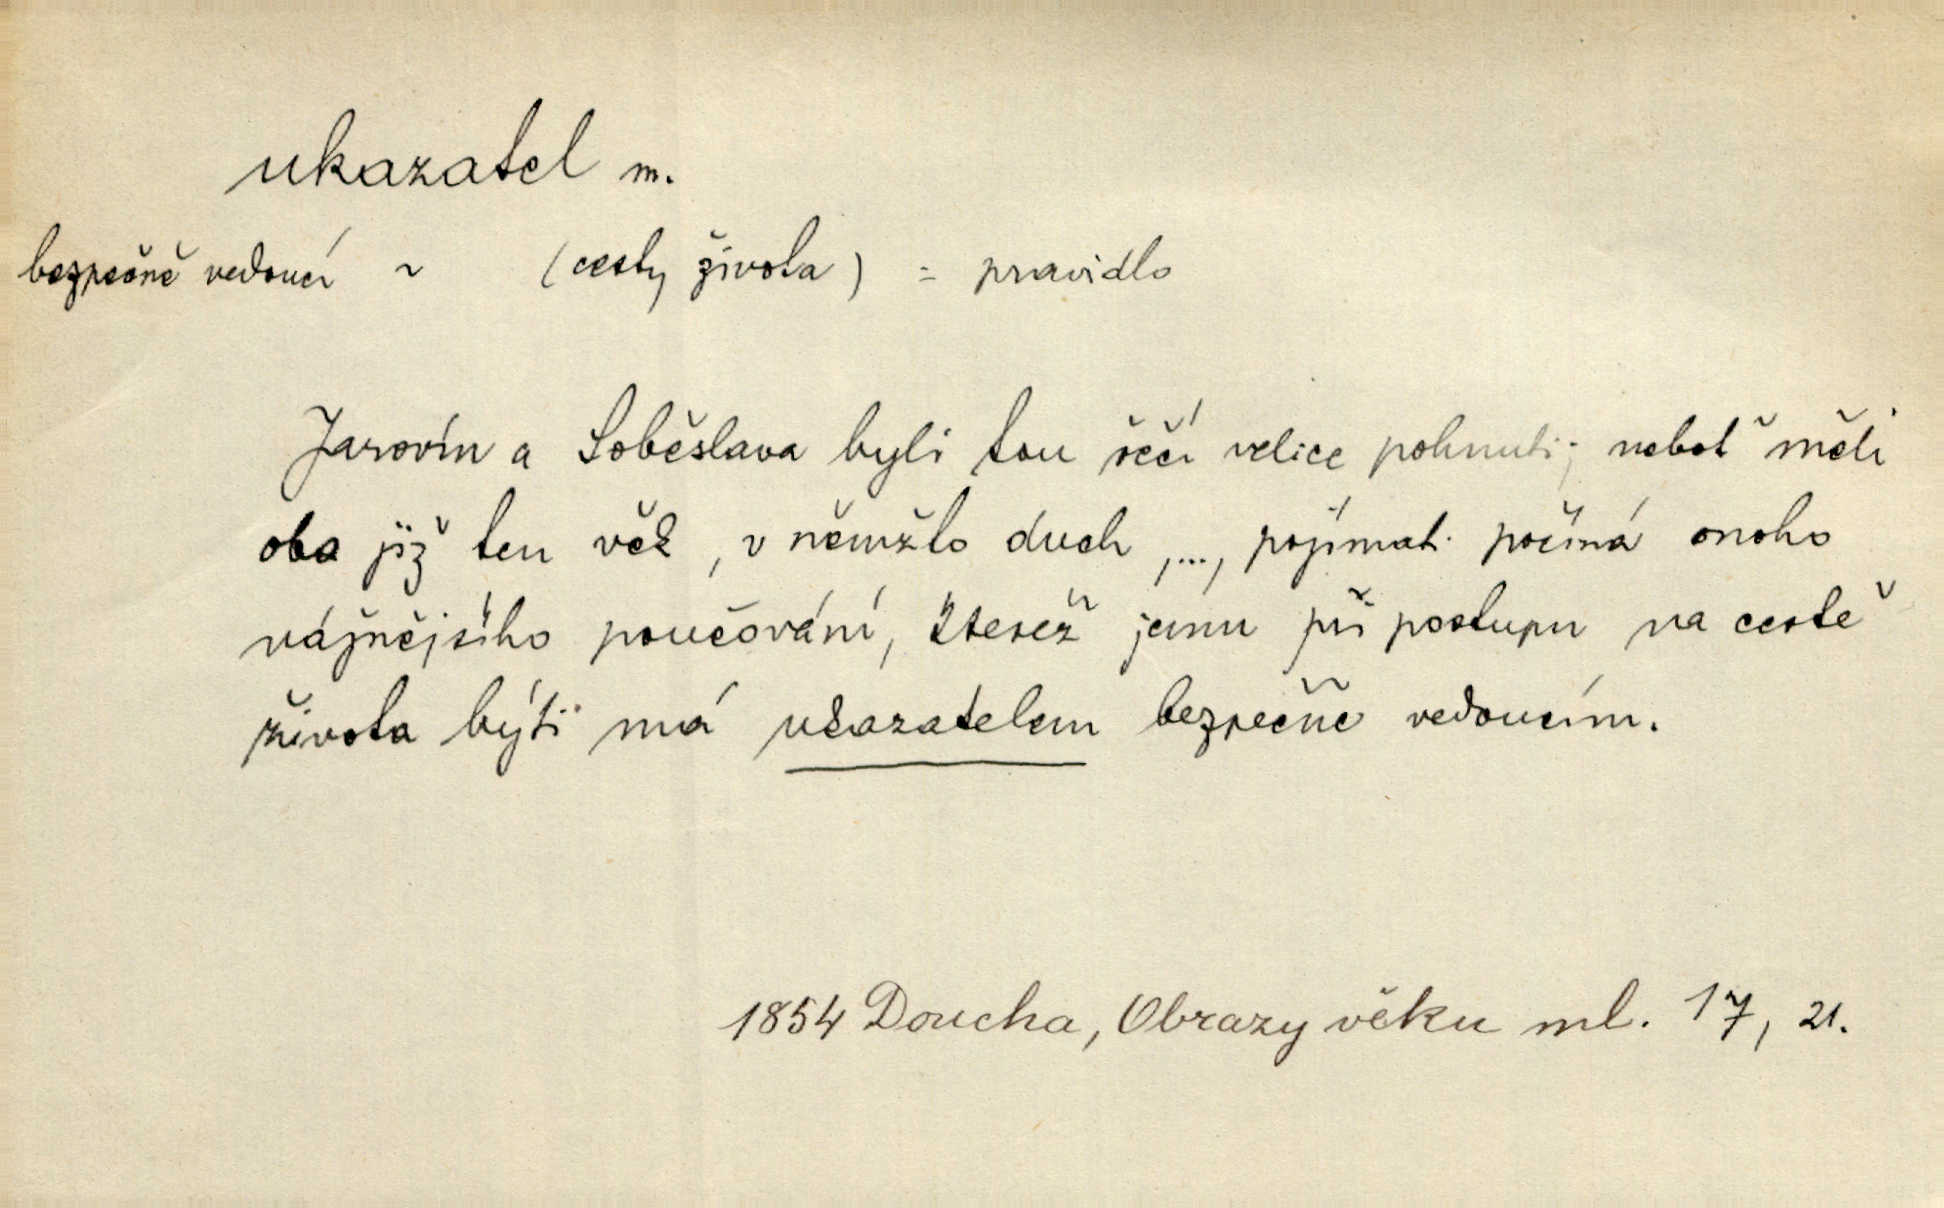 ukazatel m.
bezpečně vedoucí ~ (cesty života) = pravidlo
Jarovín a Soběslava byli tou řečí velice pohnuti; neboť měli
oba již ten věk, v němžto duch ,..., pojímati počíná onoho
vážnějšího poučování, kteréž jemu při postupu na cestě
života býti má ukazatelem bezpečně vedoucím.
1854 Doucha, Obrazy věku ml. 17, 21.